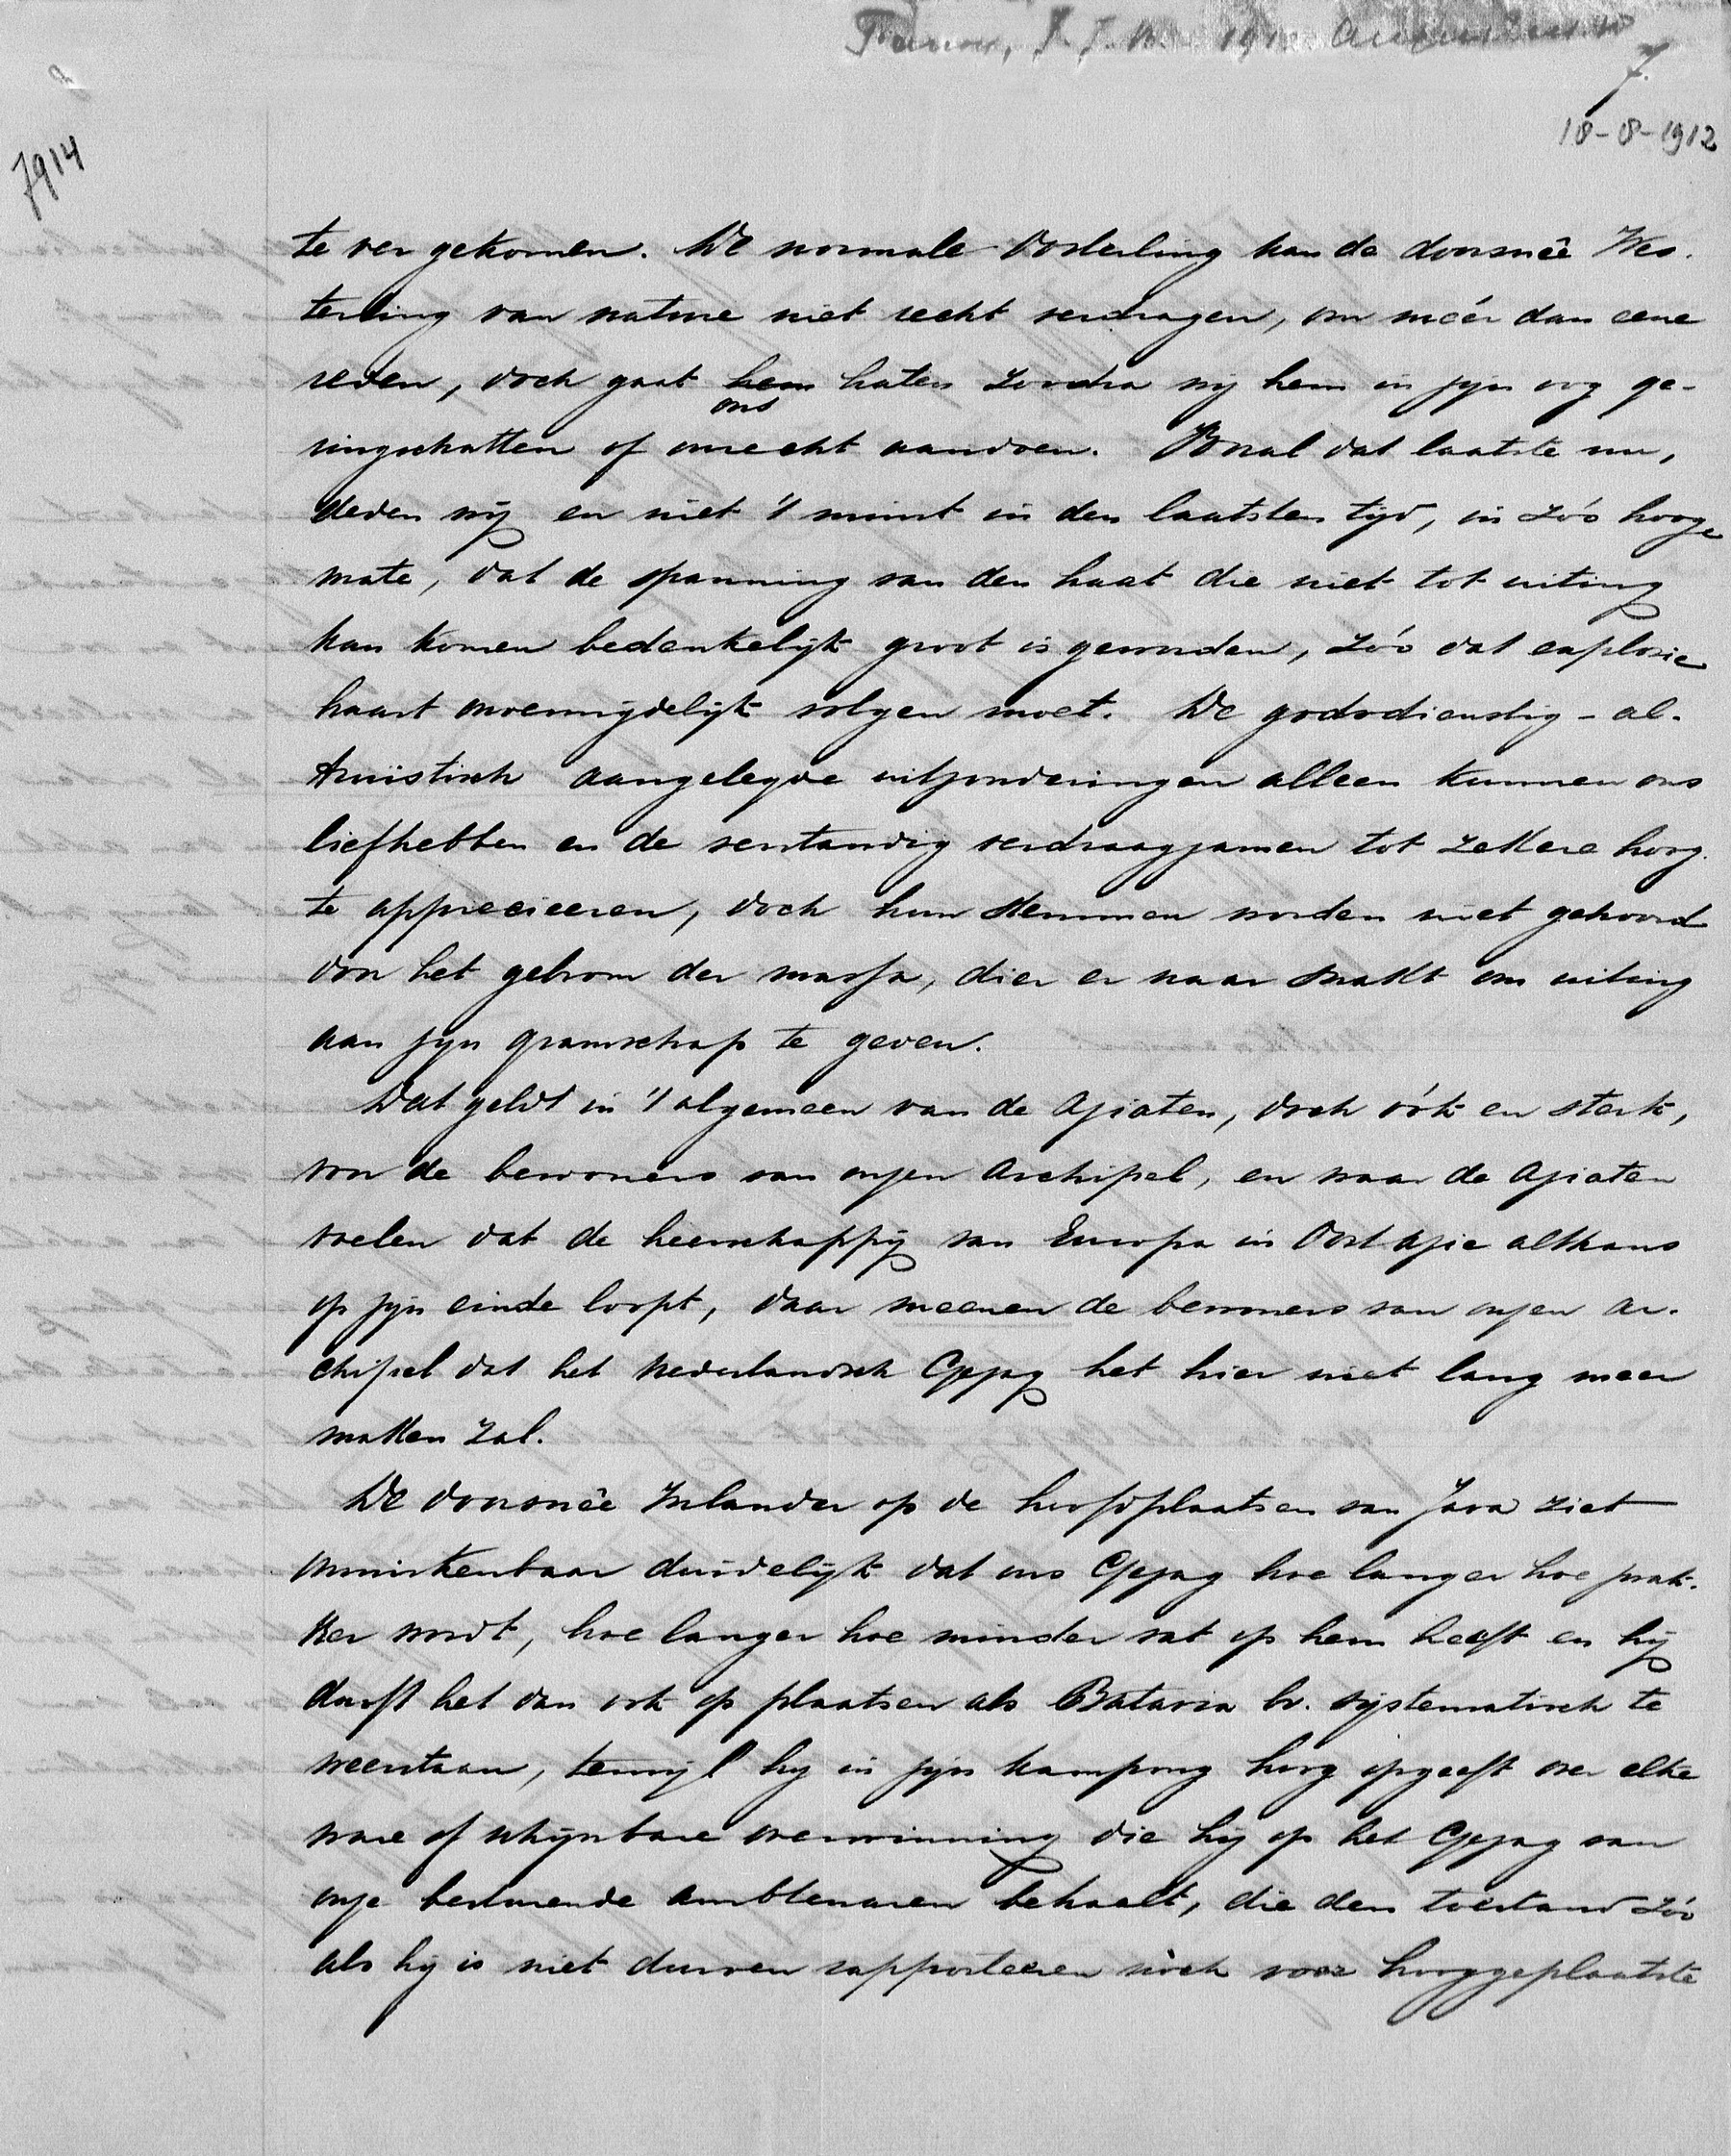 7.
18-8-1912
7914
te ver gekomen. De normale Oosterling kan de doorsneê Wes-
terling van nature niet recht verdragen, om méér dan eene
reden, doch gaat hem haten zoodra wij hem in zijn oog ge-
ons
ringschatten of onrecht aandoen. Vooral dat laatste nu,
deden wij en niet 't minst in den laatsten tijd, in zóo hooge
mate, dat de spanning van den haat die niet tot uiting
kan komen bedenkelijk groot is geworden, zóo dat explosie
haast onvermijdelijk volgen moet. De godsdienstig-al-
truistisch aangelegde uitzonderingen alleen kunnen ons
liefhebben en de verstandig verdraagzamen tot zekere hoog-
te apprecieeren, doch hun stemmen worden niet gehoord
door het gebrom der massa, dier er naar snakt om uiting
aan zijn gramschap te geven.
Dat geldt in 't algemeen van de Aziaten, doch óók en sterk,
von de bewoners van onzen Archipel, en waar de Aziaten
voelen dat de heerschappij van Europa in Oost Azie althans
op zijn einde loopt, daar meenen de bewoners van onzen Ar-
chipel dat het Nederlandsch Gezag het hier niet lang meer
maken zal.
De doorsneê Inlander op de hoofdplaatsen van Java ziet
onmiskenbaar duidelijk dat ons Gezag hoe langer hoe zwak-
ker wordt, hoe langer hoe minder vat op hem heeft en hij
durft het dan ook op plaatsen als Batavia bv. systematisch te
weerstaan, terwijl hij in zijn kampong hoog opgeeft over elke
ware of schijnbare overwinning die hij op het Gezag van
onze besturende ambtenaren behaalt, die den toestand zóo
als hij is niet durven rapporteeren wijl voor hooggeplaatste